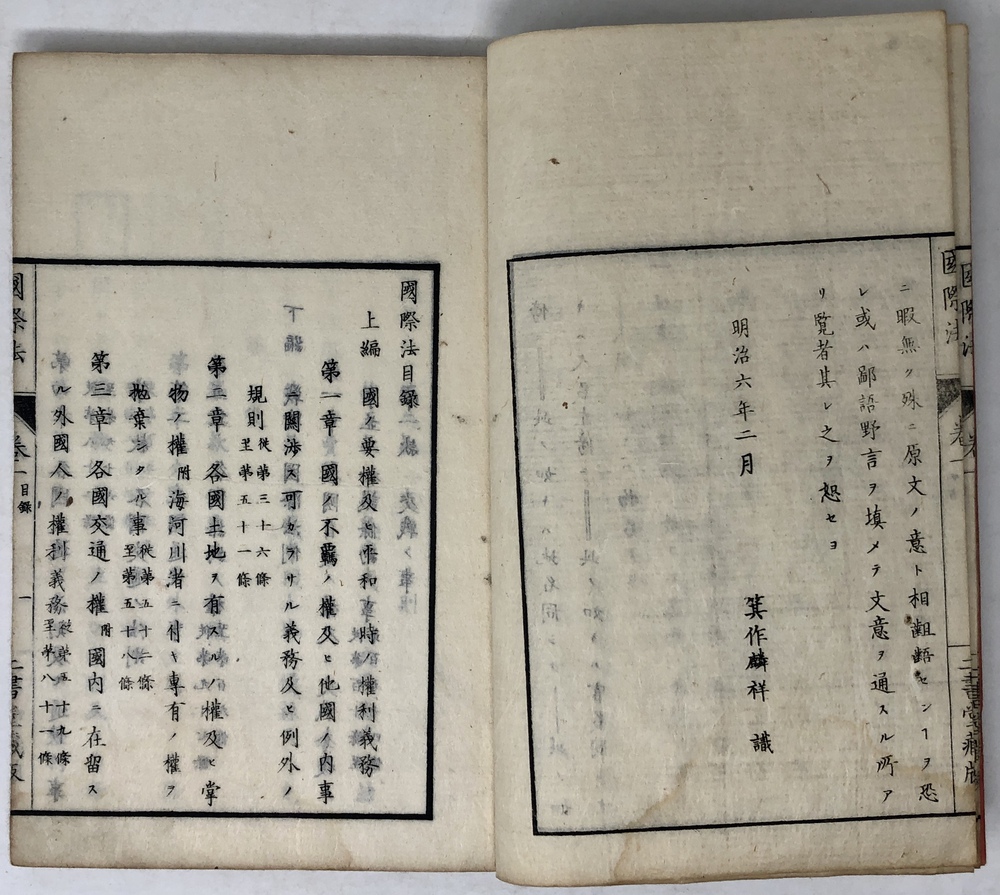 ニ暇無ク殊ニ原文ノ意ト相齟齬センヿヲ恐
レ或ハ鄙語野言ヲ填メテ文意ヲ通スル所ア
リ覧者其レ之ヲ恕セヨ
明治六年二月
箕作麟祥 識
國際法目録
上編 國ノ要權及ヒ平和時ノ權利義務
第一章 國ノ不羈ノ權及ヒ他國ノ内事
ニ關渉ス可カラサル義務及ヒ例外ノ
規則 從第三十六條 至第五十一條
第二章 各國土地ヲ有スルノ權及ヒ掌
物ノ權 附海河川渚ニ付キ專有ノ權ヲ
抛棄シタル事 從第五十二條 至第五十八條
第三章 各國交通ノ權 附國内ニ在留ス
ル外國人ノ權利義務 從第五十九條 至第八十一條
國際法
卷一
目録
一